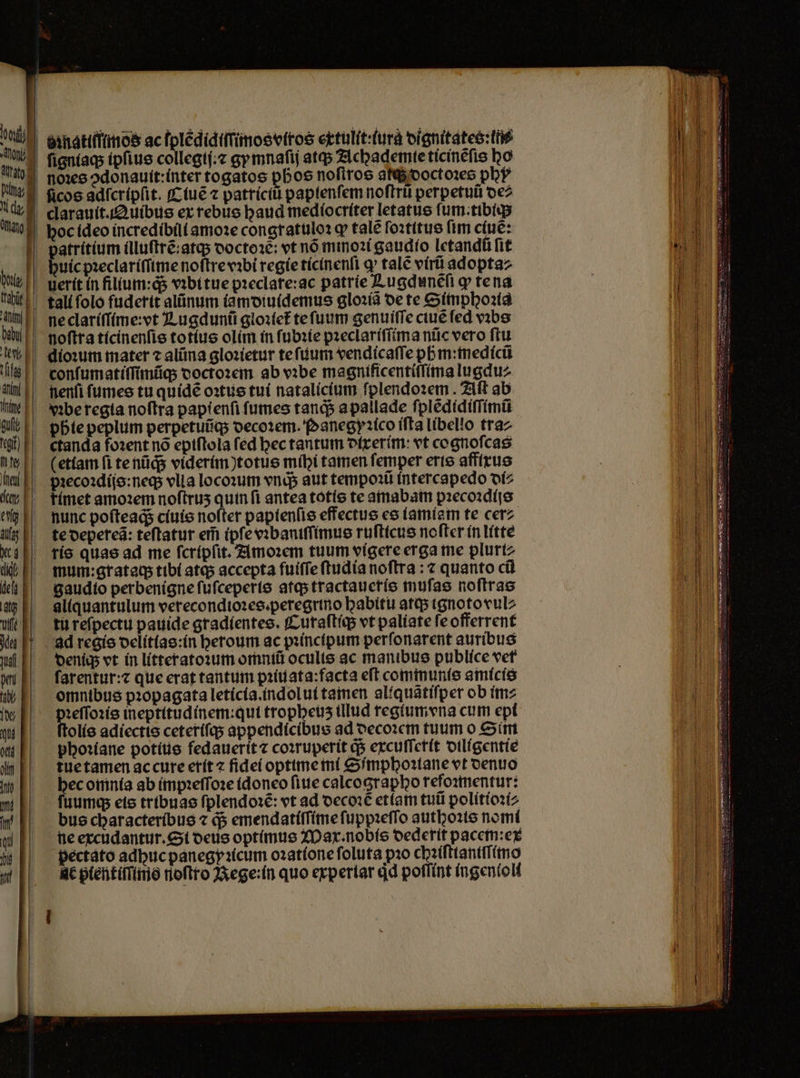 ornatissimos ac splēdidissimos viros extulit: iura dignitates:
signiaqȝ ipsius collegij: ⁊ gymnasij atqȝ Achademie ticinēsis ho
nores ꝯdonauit: inter togatos phos nostros atqȝ doctores phy
sicos adscripsit. Ciuē ⁊ patriciū papiensem nostrū perpetuū de⸗
clarauit. Quibus ex rebus haud mediocriter letatus sum. tibiqȝ
hoc ideo incredibili amore congratulor ꝙ talē sortitus sim ciuē:
patritium illustrē: atqȝ doctorē: vt nō minori gaudio letandū sit
huic preclarissime nostre vrbi regie ticinensi ꝙ talē virū adopta⸗
uerit in filium: qȝ̄ vrbi tue preclare: ac patrie Lugdunēsi ꝙ te na
tali solo fuderit alūnum iam diuidemus gloriā de te Simphoria
ne clarissime: vt Lugdunū gloriet᷑ te suum genuisse ciuē sed vrbs
nostra ticinensis totius olim insubrie preclarissima nūc vero stu
diorum mater ⁊ alūna glorietur te suum vendicasse phm: medicū
consumatissimūqȝ doctorem ab vrbe magnificentissima lugdu⸗
nensi sumes tu quidē ortus tui natalicium splendorem. Ast ab
vrbe regia nostra papiensi sumes tanqȝ̄ a pallade splēdidissimū
phie peplum perpetuūqȝ decorem. Panegyrico ista libello tra⸗
ctanda forent nō epistola sed hec tantum dixerim: vt cognoscas
(etiam si te nūqȝ̄ viderim) totus mihi tamen semper eris affixus
precordijs: neqȝ vlla locorum vnqȝ̄ aut temporū intercapedo di⸗
rimet amorem nostruȝ quin si antea totis te amabam precordijs
nunc posteaqȝ̄ ciuis noster papiensis effectus es iamiam te cer⸗
te depereā: testatur em̄ ipse vrbanissimus rusticus noster in litte
ris quas ad me scripsit. Amorem tuum vigere erga me pluri⸗
mum: grataqȝ tibi atqȝ accepta fuisse studia nostra: ⁊ quanto cū
gaudio perbenigne susceperis atqȝ tractaueris musas nostras
aliquantulum verecondiores. peregrino habitu atqȝ ignoto vul⸗
tu respectu pauide gradientes. Curastiqȝ vt paliate se offerrent
ad regis delitias: in heroum ac principum personarent auribus
deniqȝ vt in litteratorum omniū oculis ac manibus publice ver
sarentur: ⁊ que erat tantum priuata: facta est communis amicis
omnibus propagata leticia. indolui tamen aliquātisper ob im⸗
pressoris ineptitudinem: qui tropheuȝ illud regium vna cum epi
stolis adiectis ceterisqȝ appendicibus ad decorem tuum o Sim
phoriane potius fedauerit ⁊ corruperit qȝ̄ excusserit diligentie
tue tamen ac cure erit ⁊ fidei optime mi Simphoriane vt denuo
hec omnia ab impressore idoneo siue calcographo reformentur:
suumqȝ eis tribuas splendorē: vt ad decorē etiam tuū politiori⸗
bus characteribus ⁊ qȝ̄ emendatissime suppresso authoris nomi
ne excudantur. Si deus optimus Max. nobis dederit pacem: ex
pectato adhuc panegyricum oratione soluta pro christianissimo
ac pientissimo nostro Rege: in quo experiar qd possint ingenioli